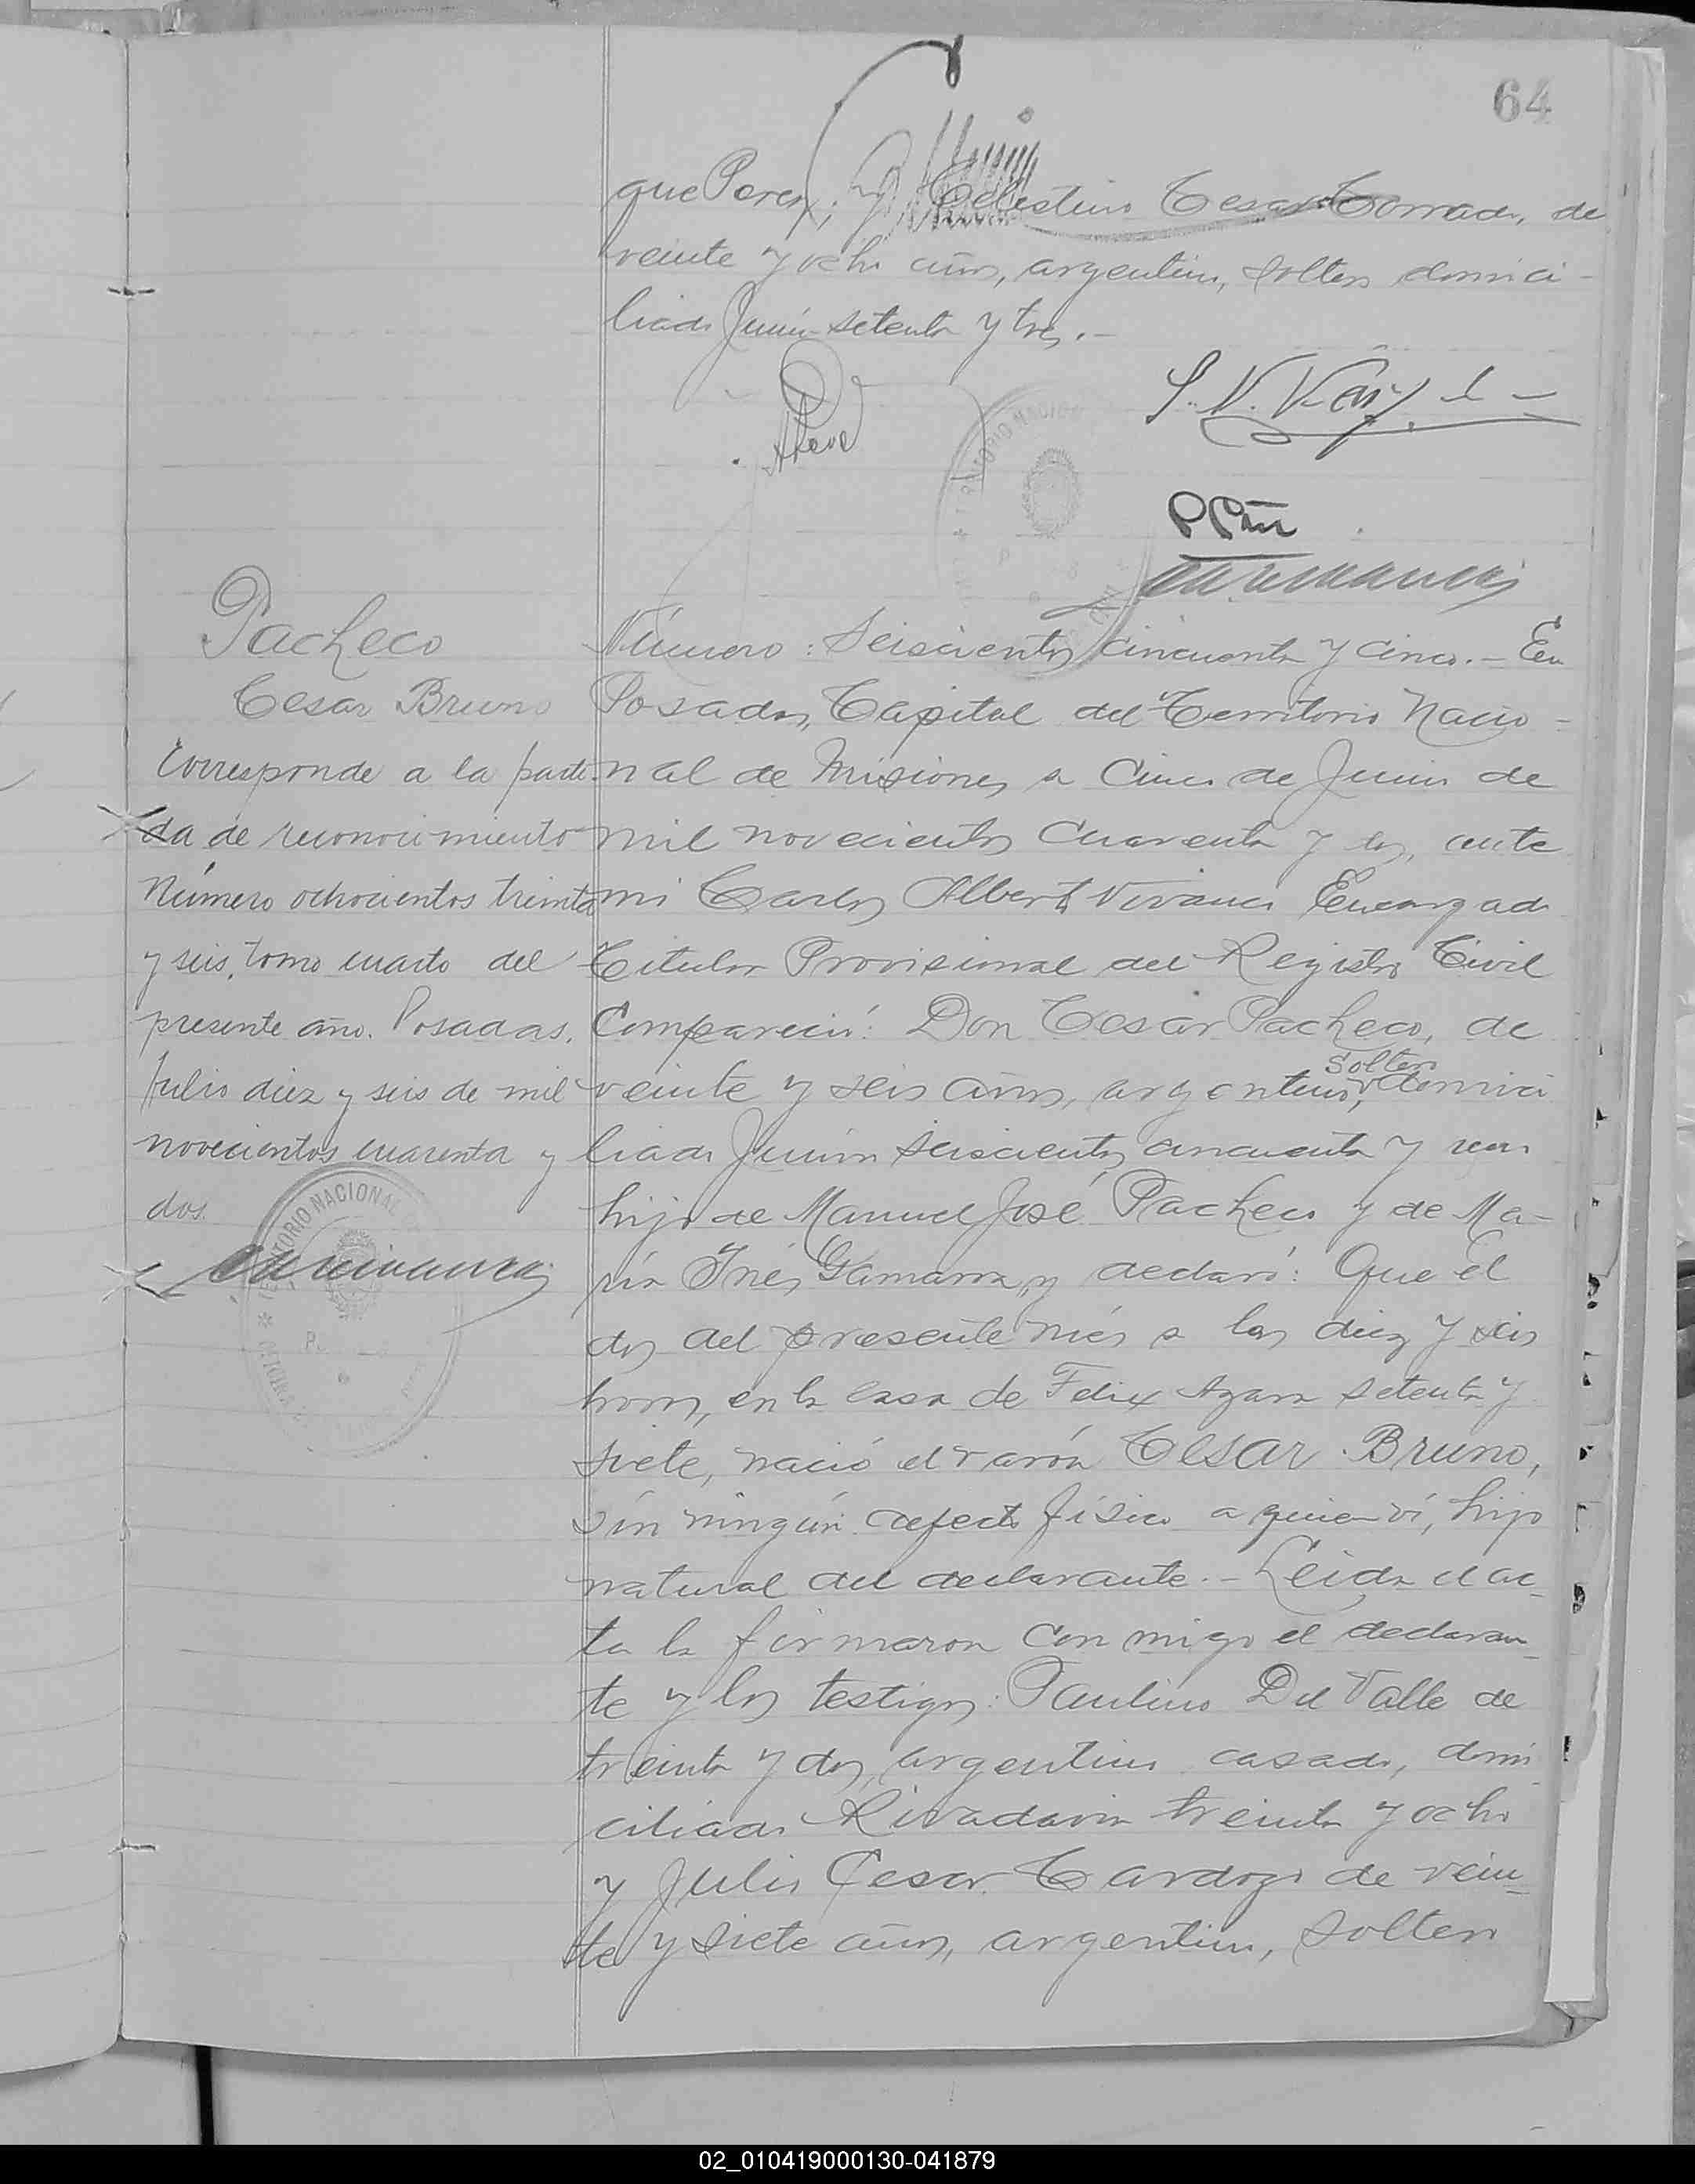 64
que Perez, y Celestino Cesar Torrado, de
veinte y ocho años, argentino, soltero domici-
liado Junín setenta y tres.-
Pacheco
Cesar Bruno
Corresponde a la parti-
da de reconocimiento
Número ochocientos treinta
y seis, tomo cuarto del
presente año. Posadas,
Julio diez y seis de mil
novecientos cuarenta y
dos.
TERRITORIO NACIONAL
Número: Seiscientos cincuenta y cinco.- En
Posadas, Capital del Territorio Nacio-
nal de Misiones a Cinco de Junio de
mil novecientos cuarenta y dos, ante
mi Carlos Alberto Vivanco Encargado
Titular Provisional del Registro Civil
Compareció: Don Cesar Pacheco, de
veinte y seis años, argentino, soltero domici
liado Junín seiscientos cincuenta y
hijo de Manuel José Pacheco y de Ma-
ría Inés Gamarra, y declaró: Que el
dos del presente més a las diez y seis
horas, en la casa de Felix Azara setenta y
siete, nació el varón Cesar Bruno,
sín ningún defecto físico a quien ví, hijo
natural del declarante.- Leida el ac-
ta la firmaron conmigo el declaran-
te y los testigos: Paulino Del Valle de
treinta y dos, argentino casado, domi-
ciliado Rivadavia treinta y ocho
y Julio Cesar Cardozo de vein-
te y siete años, argentino, soltero
02_010419000130-041879